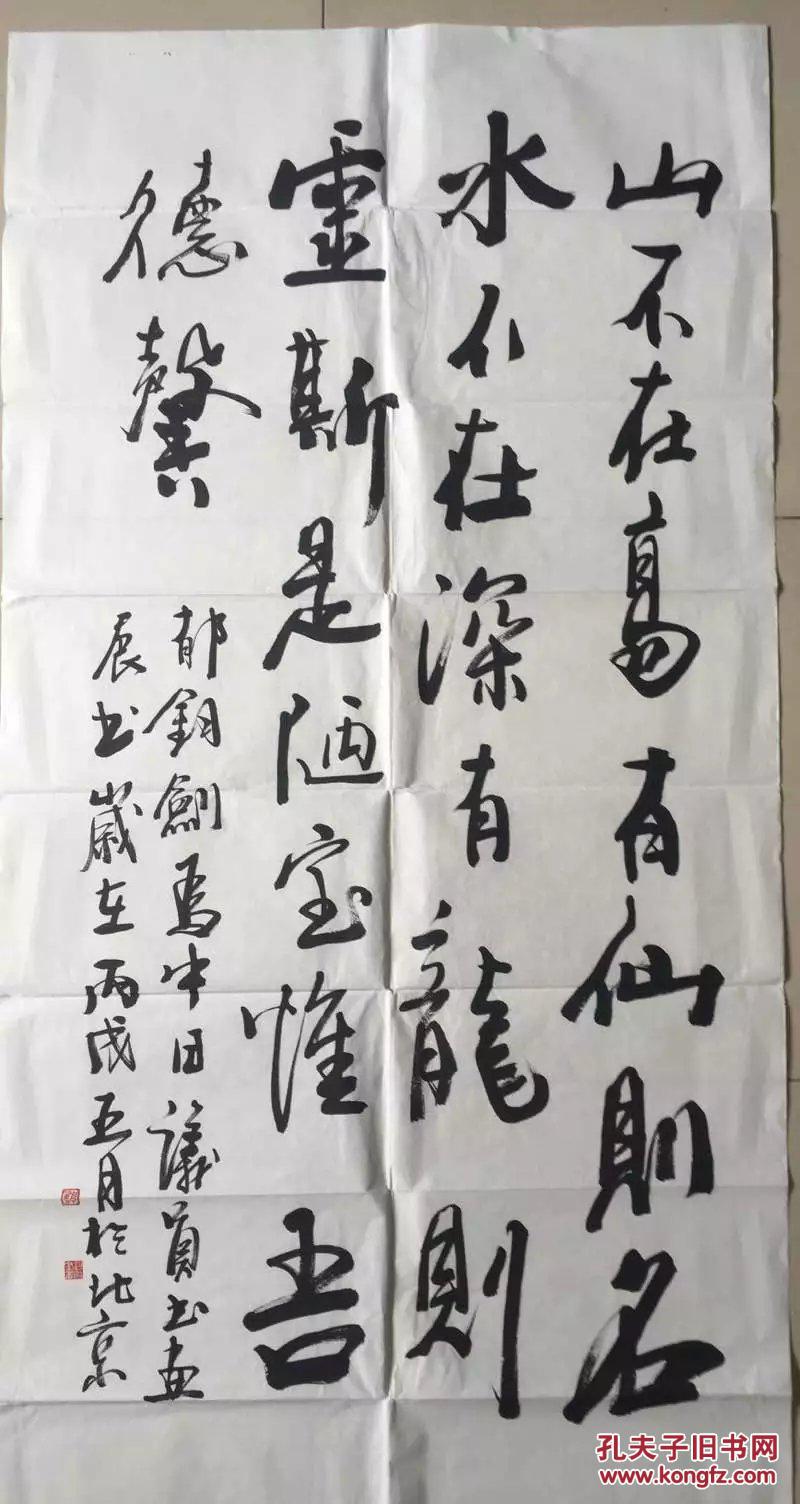 山不在高有仙則名
水不在深有龍則
靈斯是陋室惟吾
德馨
郁鈞劍為中日議員书画
展书歲在丙戌五月於北京
孔夫子旧书网
www.kongfz.com